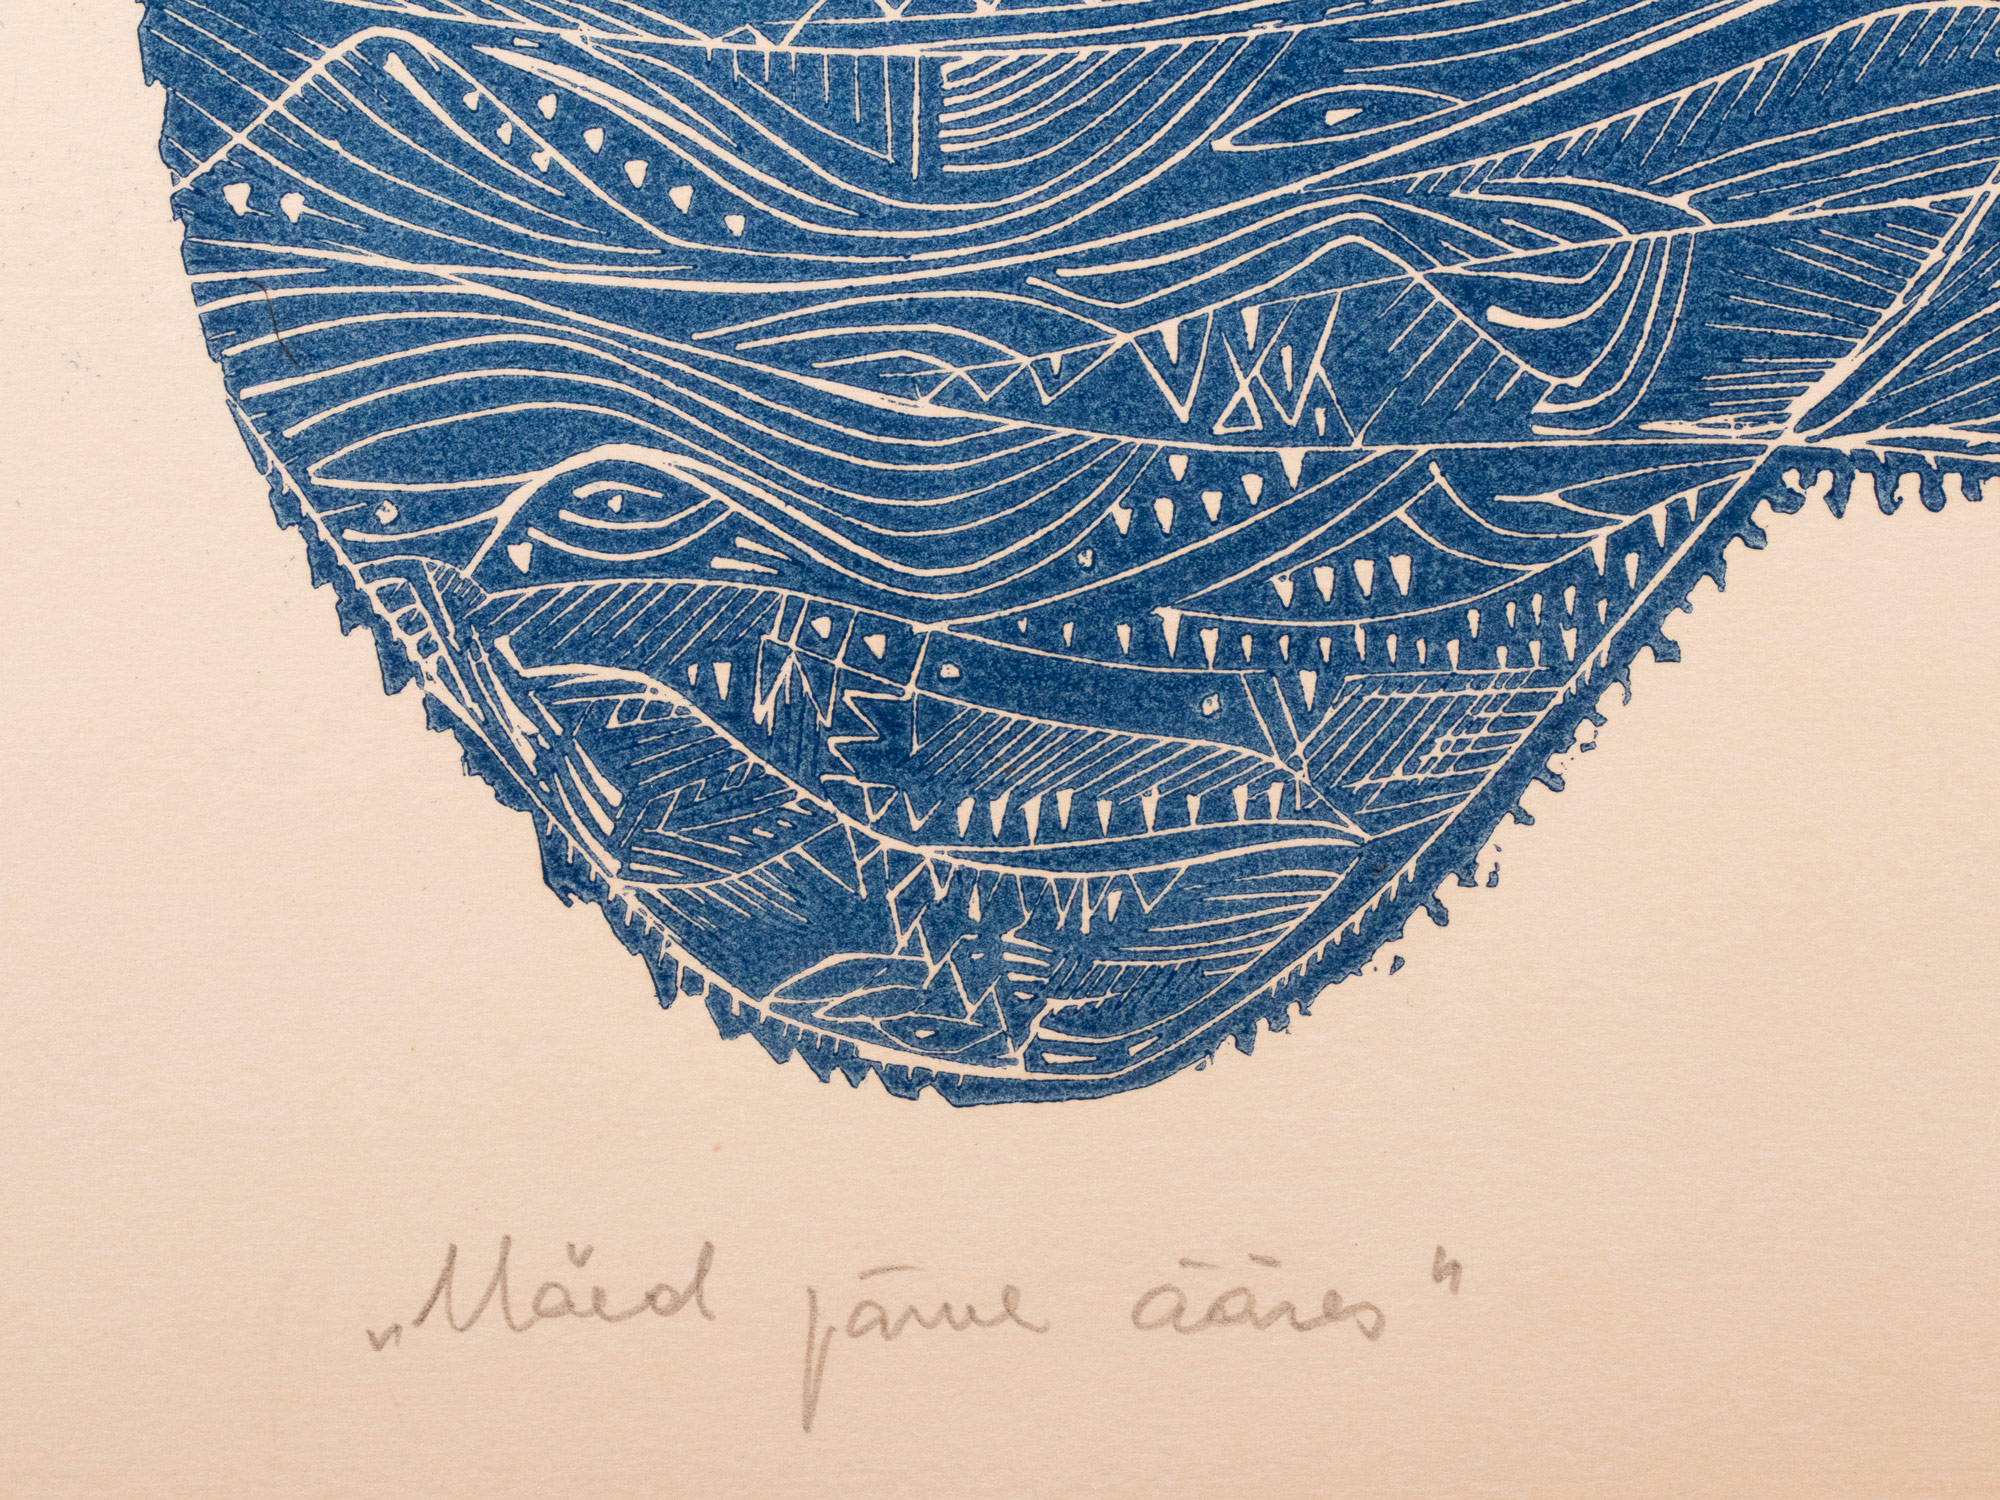 „Mäed järve ääres"